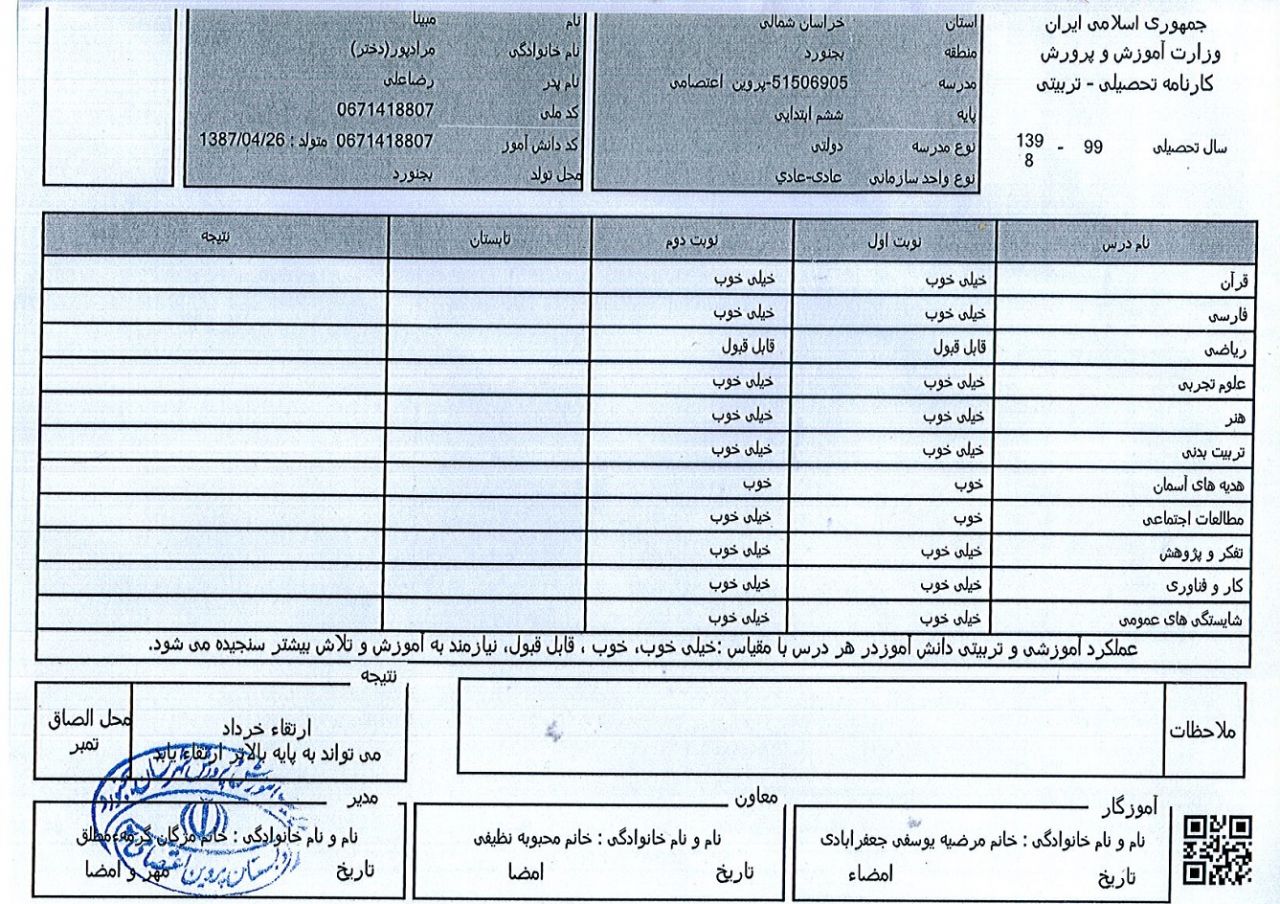 جمهوری اسلامی ایران
وزارت آموزش و پرورش
کارنامه تحصیلی - تربیتی
سال تحصیلی 99 - 1398
استان خراسان شمالی
منطقه بجنورد
مدرسه 51506905-پروین اعتصامی
پایه ششم ابتدایی
نوع مدرسه دولتی
نوع واحد سازمانی عادی-عادي
نام مبینا
نام خانوادگی مرادپور(دختر)
نام پدر رضاعلی
کد ملی 0671418807
کد دانش آموز 0671418807 متولد : 1387/04/26
محل تولد بجنورد
نام درس نوبت اول نوبت دوم تابستان نتیجه
قرآن خیلی خوب خیلی خوب
فارسی خیلی خوب خیلی خوب
ریاضی قابل قبول قابل قبول
علوم تجربی خیلی خوب خیلی خوب
هنر خیلی خوب خیلی خوب
تربیت بدنی خیلی خوب خیلی خوب
هدیه های آسمان خوب خوب
مطالعات اجتماعی خوب خیلی خوب
تفکر و پژوهش خیلی خوب خیلی خوب
کار و فناوری خیلی خوب خیلی خوب
شایستگی های عمومی خیلی خوب خیلی خوب
عملکرد آموزشی و تربیتی دانش آموزدر هر درس با مقیاس :خیلی خوب، خوب ، قابل قبول، نیازمند به آموزش و تلاش بیشتر سنجیده می شود.
ملاحظات
نتیجه
ارتقاء خرداد
می تواند به پایه بالاتر ارتقاء یابد
محل الصاق
تمبر
آموزگار
نام و نام خانوادگی : خانم مرضیه یوسفی جعفرابادی
تاریخ امضاء
معاون
نام و نام خانوادگی : خانم محبوبه نظیفی
تاریخ امضا
مدیر
نام و نام خانوادگی : خانم مژگان گرمه ءمطلق
تاریخ مهر و امضا
دبستان پروین اعتصامی